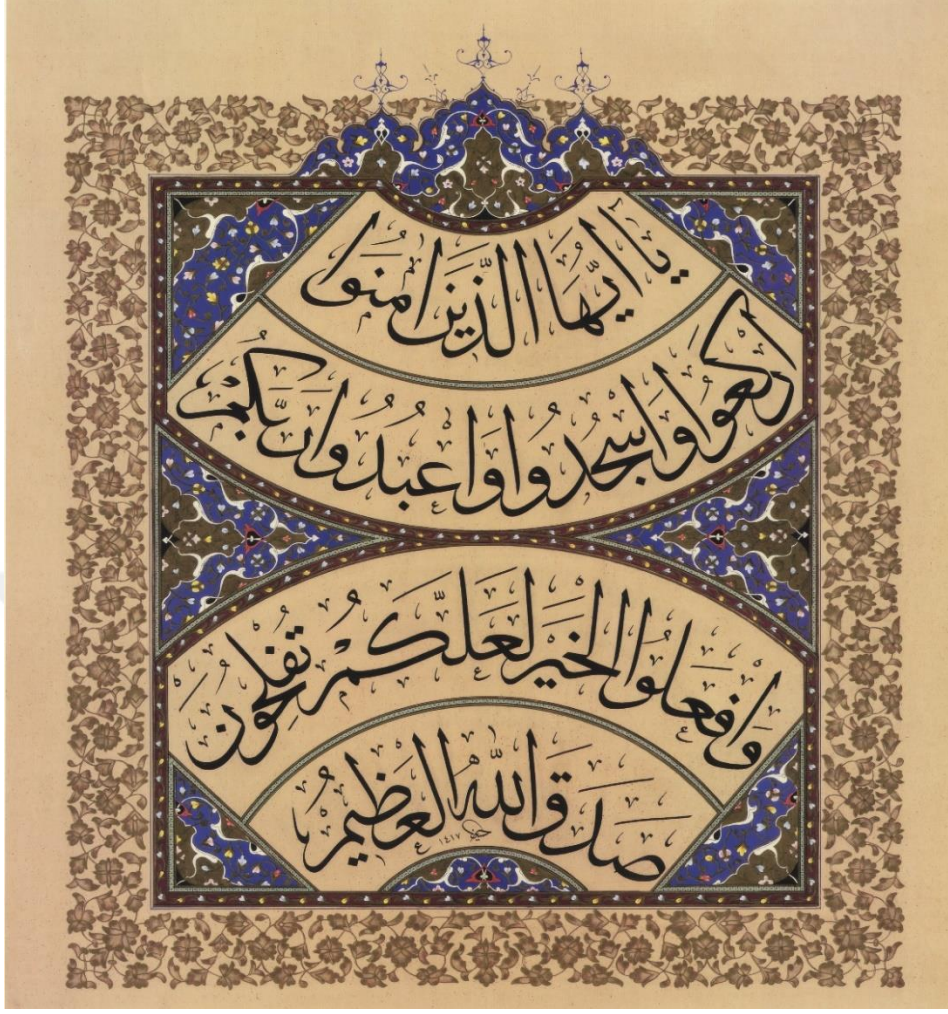 يَا اَيُّهَا الَّذٖينَ اٰمَنُوا
ارْكَعُوا وَاسْجُدُوا وَاعْبُدُوا رَبَّكُمْ
وَافْعَلُوا الْخَيْرَ لَعَلَّكُمْ تُفْلِحُونَ
صَدَقَ اللّٰهُ الْعَظٖيمُ
١٤١٧